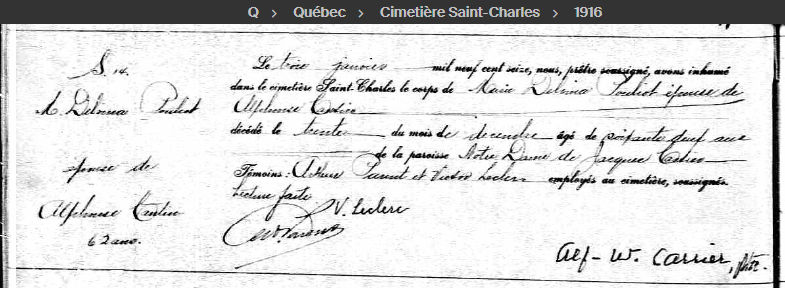 Q > Québec > Cimetière Saint-Charles > 1916
S. 14.
M. Delvina Pouliot
épouse de
Alphonse
62 ans.
Le trois janvier mil neuf cent seize, nous, prêtre soussigné, avons inhumé
dans le cimetière Saint-Charles le corps de Marie Delvina Pouliot épouse de
Alphonse
décédé le trente du mois de decembre âgé de soixante deux ans
de la paroisse Notre Dame de Jacques Cartier
Témoins: Arthur et Victor Leclerc employés au cimetière, soussignés.
Lecture faite.
V. Leclerc
Alf-W. Carrier, ptre.